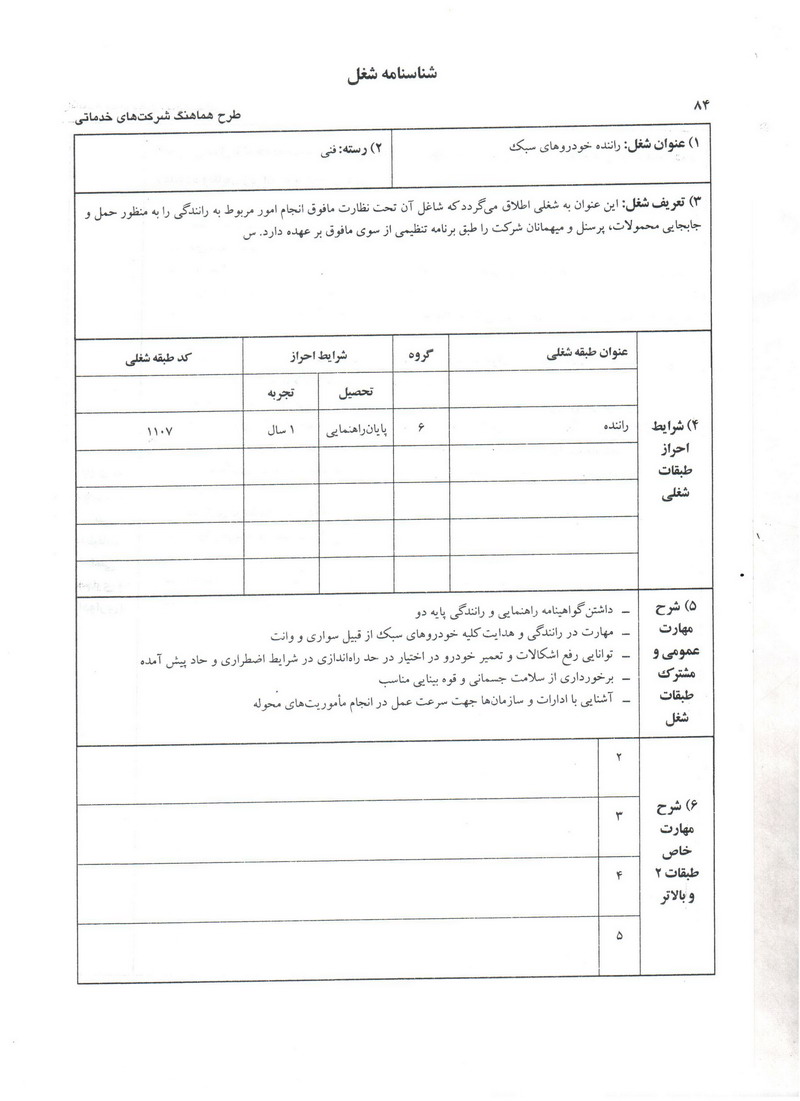 شناسنامه شغل
۸۴
طرح هماهنگ شرکت‌های خدماتی
۱) عنوان شغل: راننده خودروهای سبک
۲) رسته: فنی
۳) تعریف شغل: این عنوان به شغلی اطلاق می‌گردد که شاغل آن تحت نظارت مافوق انجام امور مربوط به رانندگی را به منظور حمل و
جابجایی محمولات، پرسنل و میهمانان شرکت را طبق برنامه تنظیمی از سوی مافوق بر عهده دارد. س
۴) شرایط
احراز
طبقات
شغلی
عنوان طبقه شغلی
گروه
شرایط احراز
کد طبقه شغلی
تحصیل
تجربه
راننده
۶
پایان‌راهنمایی
۱ سال
۱۱۰۷
۵) شرح
مهارت
عمومی و
مشترک
طبقات
شغل
– داشتن گواهینامه راهنمایی و رانندگی پایه دو
– مهارت در رانندگی و هدایت کلیه خودروهای سبک از قبیل سواری و وانت
– توانایی رفع اشکالات و تعمیر خودرو در اختیار در حد راه‌اندازی در شرایط اضطراری و حاد پیش آمده
– برخورداری از سلامت جسمانی و قوه بینایی مناسب
– آشنایی با ادارات و سازمان‌ها جهت سرعت عمل در انجام مأموریت‌های محوله
۶) شرح
مهارت
خاص
طبقات ۲
و بالاتر
۲
۳
۴
۵